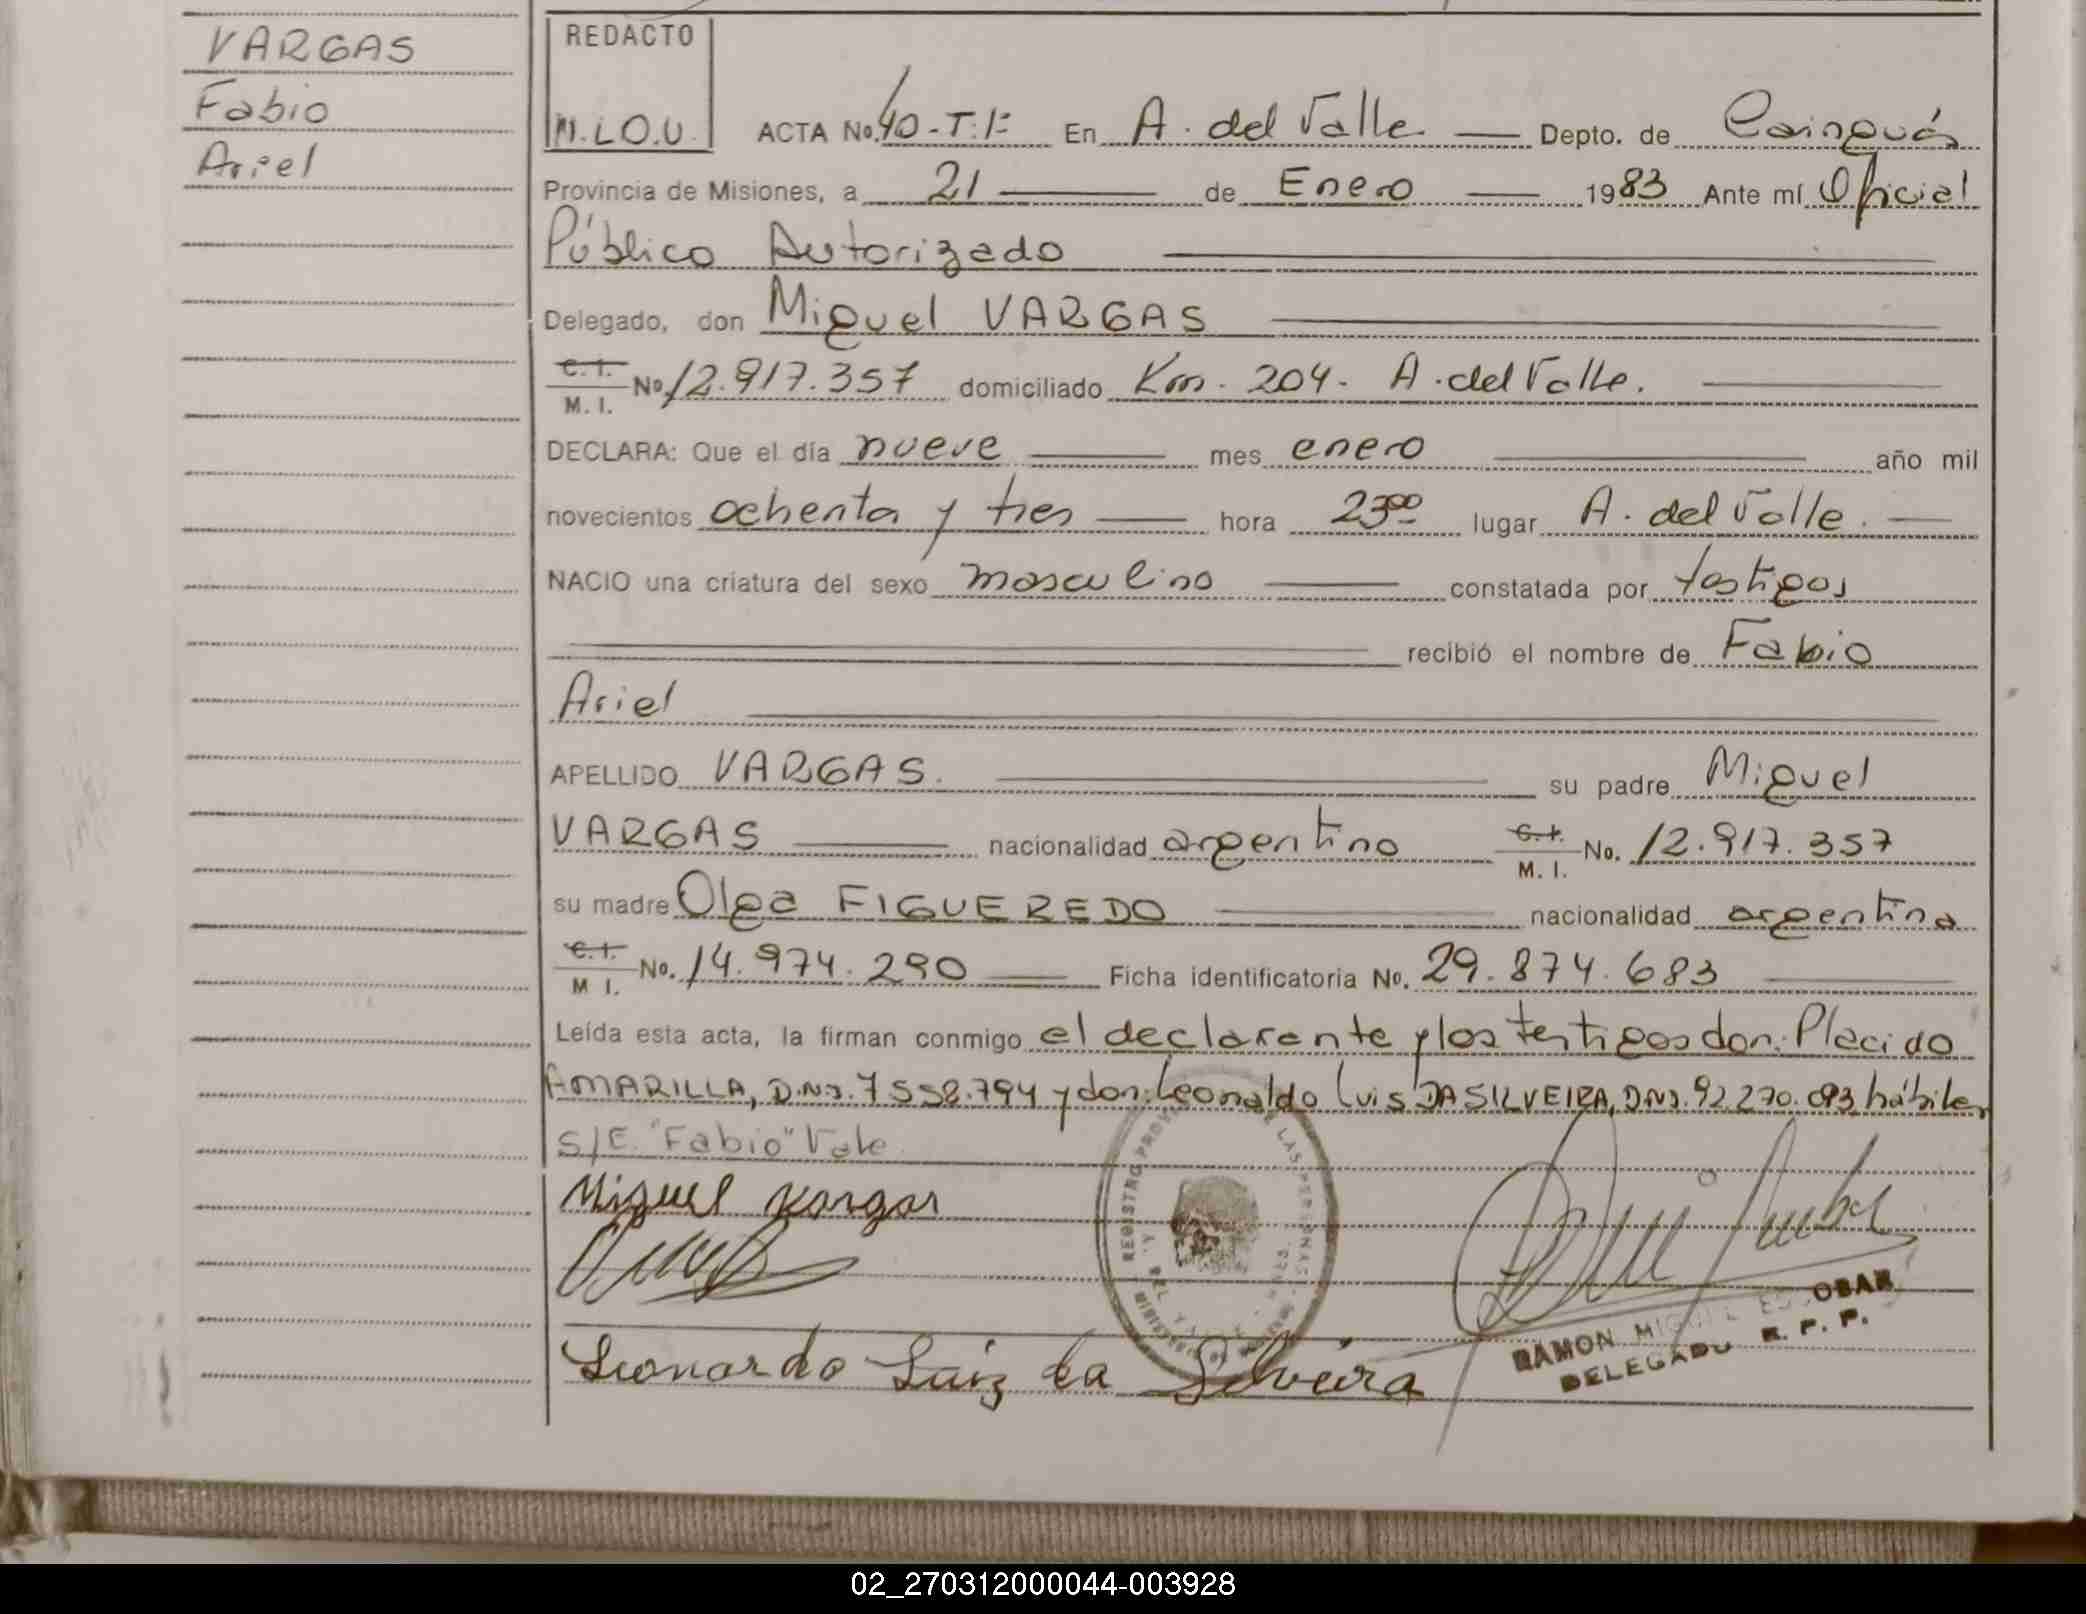 VARGAS
Fabio
Ariel
REDACTO
M.L.O.U.
ACTA No. 40-T:1º En A. del Valle Depto. de Cainguás
Provincia de Misiones, a 21 de Enero 1983 Ante mí Oficial
Público Autorizado
Delegado, don Miguel VARGAS
C.I. M.I. No 12.917.357 domiciliado Km. 204. A. del Valle.
DECLARA: Que el día nueve mes enero año mil
novecientos ochenta y tres hora 23⁰⁰ lugar A. del Valle.
NACIO una criatura del sexo masculino constatada por testigos
recibió el nombre de Fabio
Ariel
APELLIDO VARGAS. su padre Miguel
VARGAS nacionalidad argentino C.I. M.I. No. 12.917.357
su madre Olga FIGUEREDO nacionalidad argentina
C.I. M I. No. 14.974.290 Ficha identificatoria No. 29.874.683
Leída esta acta, la firman conmigo el declarante y los testigos don: Placido
AMARILLA, D.N.I. 7558.794 y don: Leonaldo Luis DA SILVEIRA, D.N.I. 92.270.093 hábiles
S/E. "Fabio" Vale
Miguel Vargas
REGISTRO PROV. DE LAS PERSONAS
RAMON MIGUEL ESCOBAR
DELEGADO R. P. P.
Leonardo Luiz da Silveira
02_270312000044-003928